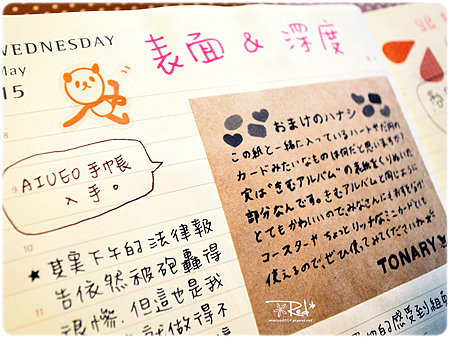 WEDNESDAY
May
15
表面 & 深度
8
9
AIUEO 手帳
入手。
10
★ 其實下午的法律報
告依然被砲轟得
很慘，但這也是我
就做得不
おまけのハナシ
この紙と一緒に入っているハートや花柄の
カードみたいなものは何だと思いますか？
実は"きむアルバム"の表紙をくりぬいた
部分なんです。きむアルバムと同じように
とてもかわいいので、みなさんにもおすそわけ！
コースターや ちょっとリッチなミニカードとして
使えるので、ぜひ使ってみてくださいね。
TONARY
Red
的感受到組